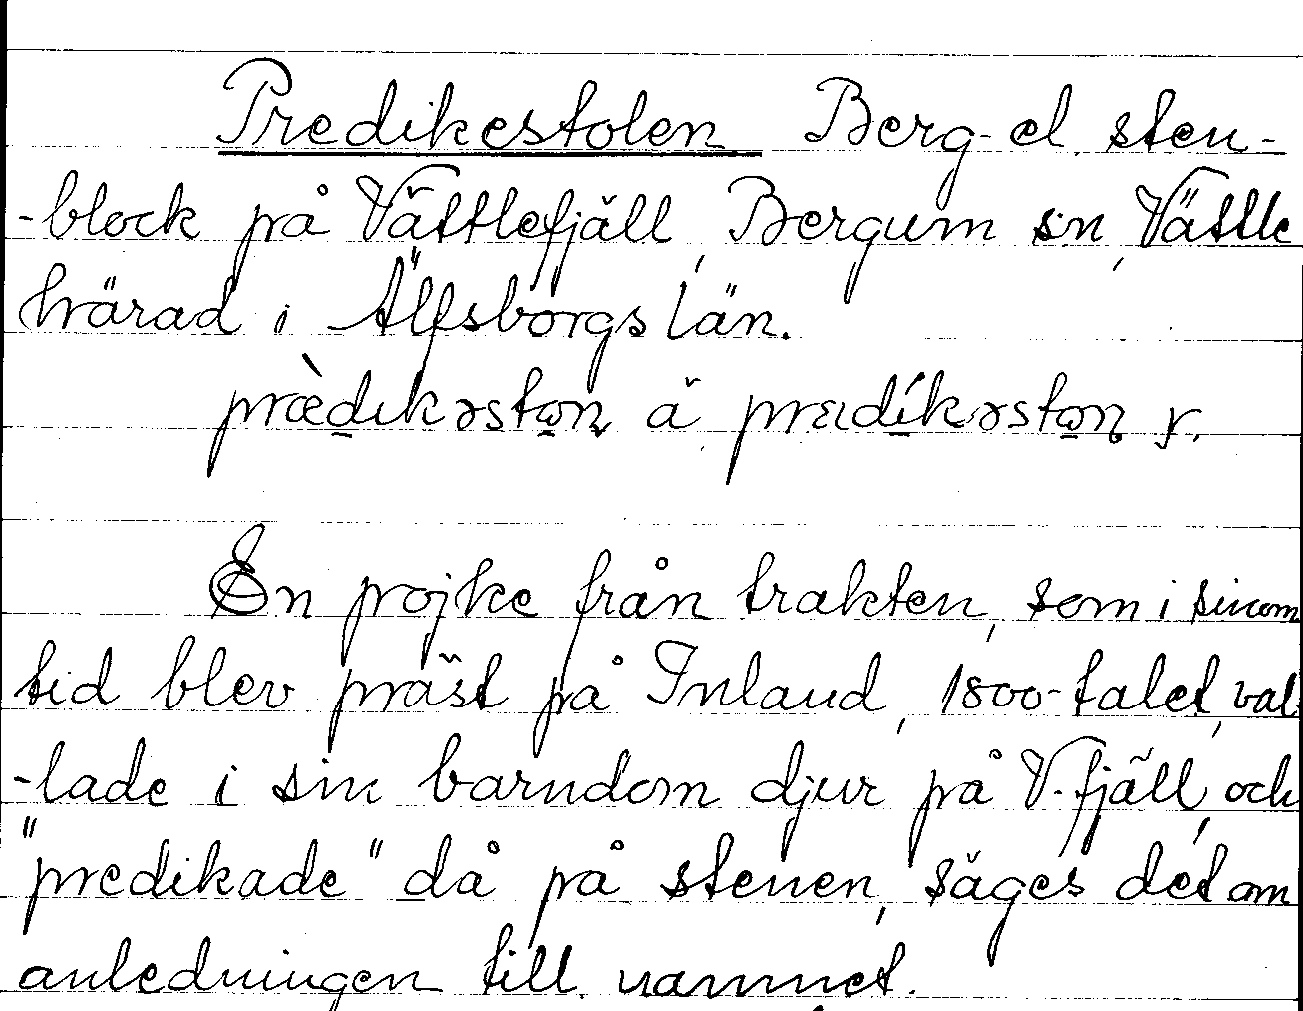 Predikestolen Berg- el. sten-
-block på Vättlefjäll, Bergum sn, Vättle
härad i Älfsborgs län.
prædikəston å prædíkəston r.
En pojke från trakten, som i sinom
tid blev präst på Inland, 1800-talet, val-
-lade i sin barndom djur på V.fjäll, och
"predikade" då på stenen, säges det om
anledningen till namnet.